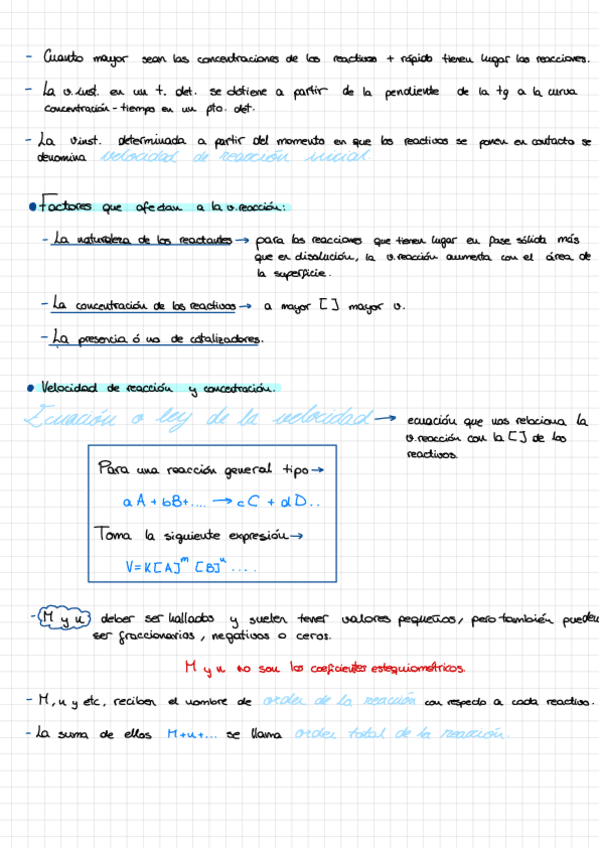 - Cuanto mayor sean las concentraciones de los reactivos + rápido tienen lugar las reacciones.
- La v.inst. en un t. det. se obtiene a partir de la pendiente de la tg a la curva
concentración - tiempo en un pto. det.
- La vinst. determinada a partir del momento en que los reactivos se ponen en contacto se
denomina velocidad de reacción inicial.
• Factores que afectan a la v.reacción:
- La naturaleza de los reactantes → para las reacciones que tienen lugar en fase sólida más
que en disolución, la v.reacción aumenta con el área de
la superficie.
- La concentración de los reactivos → a mayor [ ] mayor v.
- La presencia ó no de catalizadores.
• Velocidad de reacción y concentración.
Ecuación o ley de la velocidad → ecuación que nos relaciona la
v.reacción con la [ ] de los
reactivos.
Para una reacción general tipo →
aA + bB + .... → cC + dD..
Toma la siguiente expresión →
V = K[A]^m [B]^n ....
- M y n deber ser hallados y suelen tener valores pequeños, pero también pueden
ser fraccionarios, negativos o ceros.
M y n no son los coeficientes estequiométricos.
- M, n y etc, reciben el nombre de orden de la reacción con respecto a cada reactivo.
- La suma de ellos M+n+... se llama orden total de la reacción.